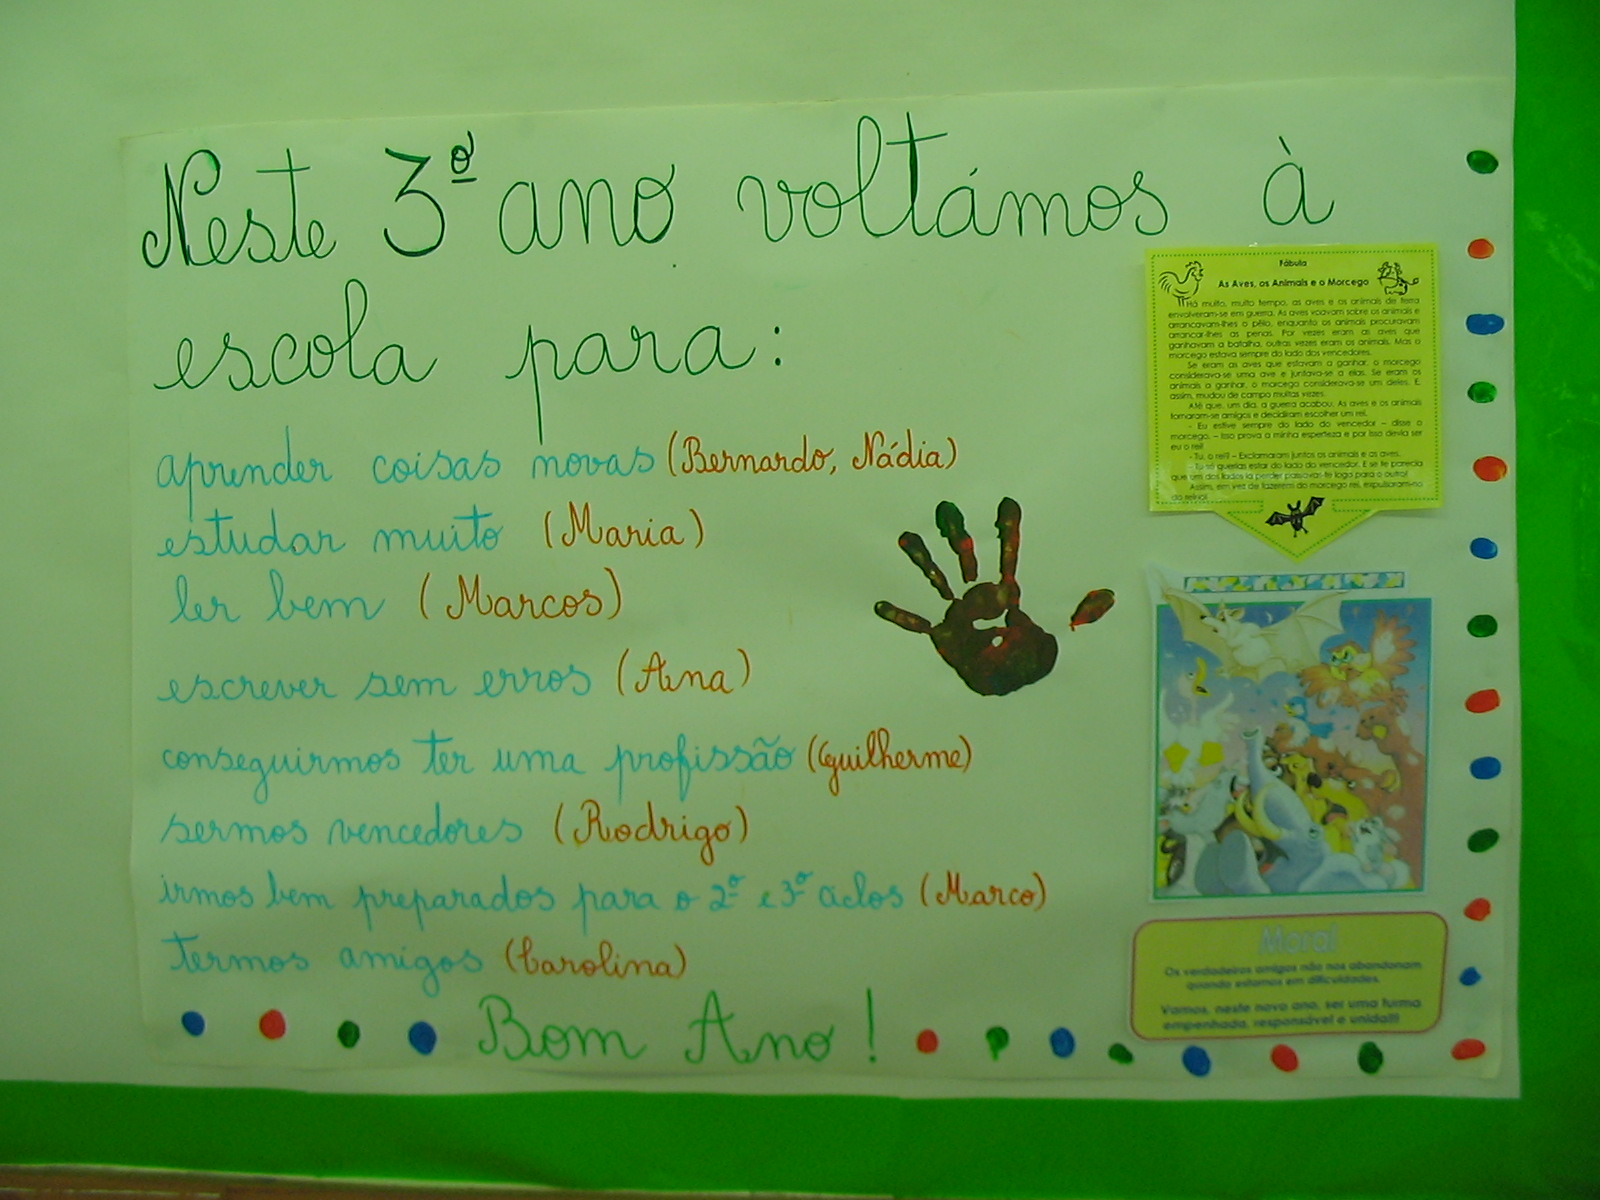 Neste 3º ano voltámos à
escola para:
aprender coisas novas (Bernardo, Nádia)
estudar muito (Maria)
ler bem (Marcos)
escrever sem erros (Ana)
conseguirmos ter uma profissão (Guilherme)
sermos vencedores (Rodrigo)
irmos bem preparados para o 2º e 3º ciclos (Marco)
termos amigos (Carolina)
Bom Ano!
Fábula
As Aves, os Animais e o Morcego
Há muito, muito tempo, as aves e os animais de terra
envolveram-se em guerra. As aves voavam sobre os animais e
arrancavam-lhes o pêlo, enquanto os animais procuravam
arrancar-lhes as penas. Por vezes eram as aves que
ganhavam a batalha, outras vezes eram os animais. Mas o
morcego estava sempre do lado dos vencedores.
Se eram as aves que estavam a ganhar, o morcego
considerava-se uma ave e juntava-se a elas. Se eram os
animais a ganhar, o morcego considerava-se um deles. E,
assim, mudou de campo muitas vezes.
Até que, um dia, a guerra acabou. As aves e os animais
tornaram-se amigos e decidiram escolher um rei.
- Eu estive sempre do lado do vencedor – disse o
morcego. – Isso prova a minha esperteza e por isso devia ser
eu o rei!
- Tu, o rei!! – Exclamaram juntos os animais e as aves.
- Tu só querias estar do lado do vencedor. E se te parecia
que um dos lados ia perder passavas-te logo para o outro!
Assim, em vez de fazerem do morcego rei, expulsaram-no
do reino!
Moral
Os verdadeiros amigos não nos abandonam
quando estamos em dificuldades.
Vamos, neste novo ano, ser uma turma
empenhada, responsável e unida!!!